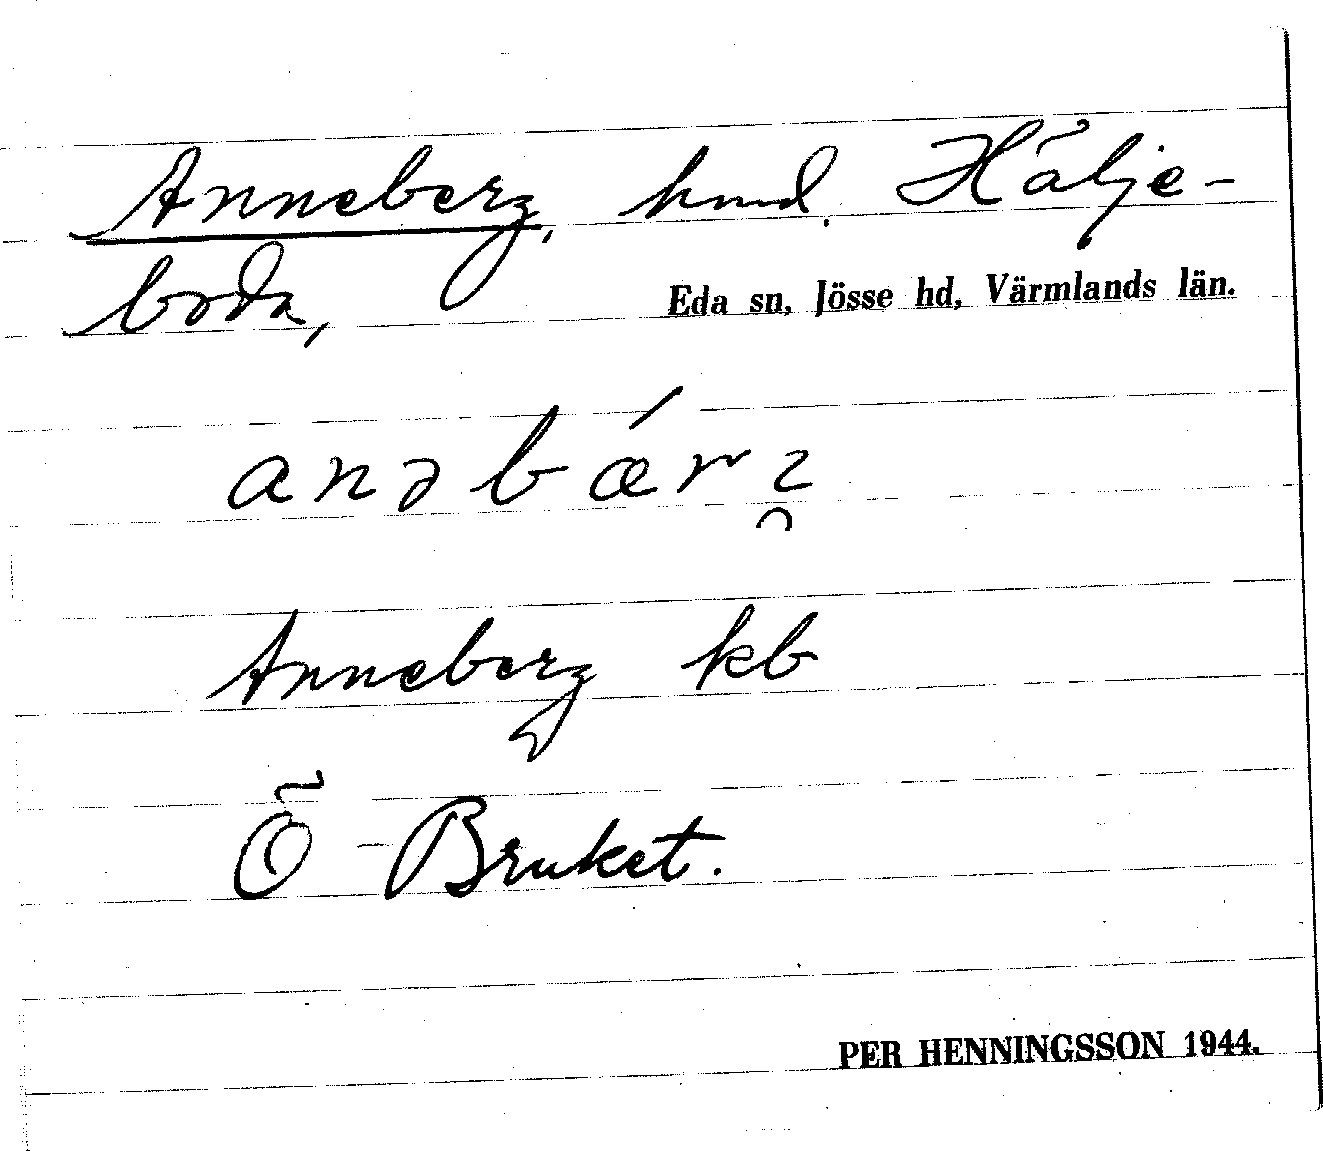 Anneberg, hmd. Hälje-
boda,
Eda sn, Jösse hd, Värmlands län.
anəbǽr
Anneberg kb
Ö Bruket.
PER HENNINGSSON 1944.